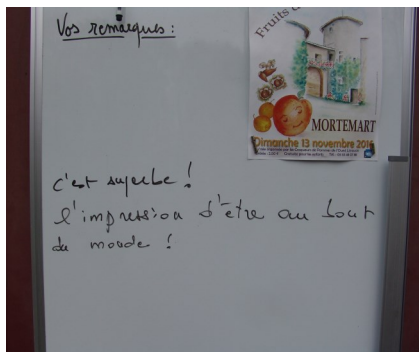 Vos remarques :
Fruits
MORTEMART
Dimanche 13 novembre 2016
c'est superbe !
l'impression d'être au bout
du monde !